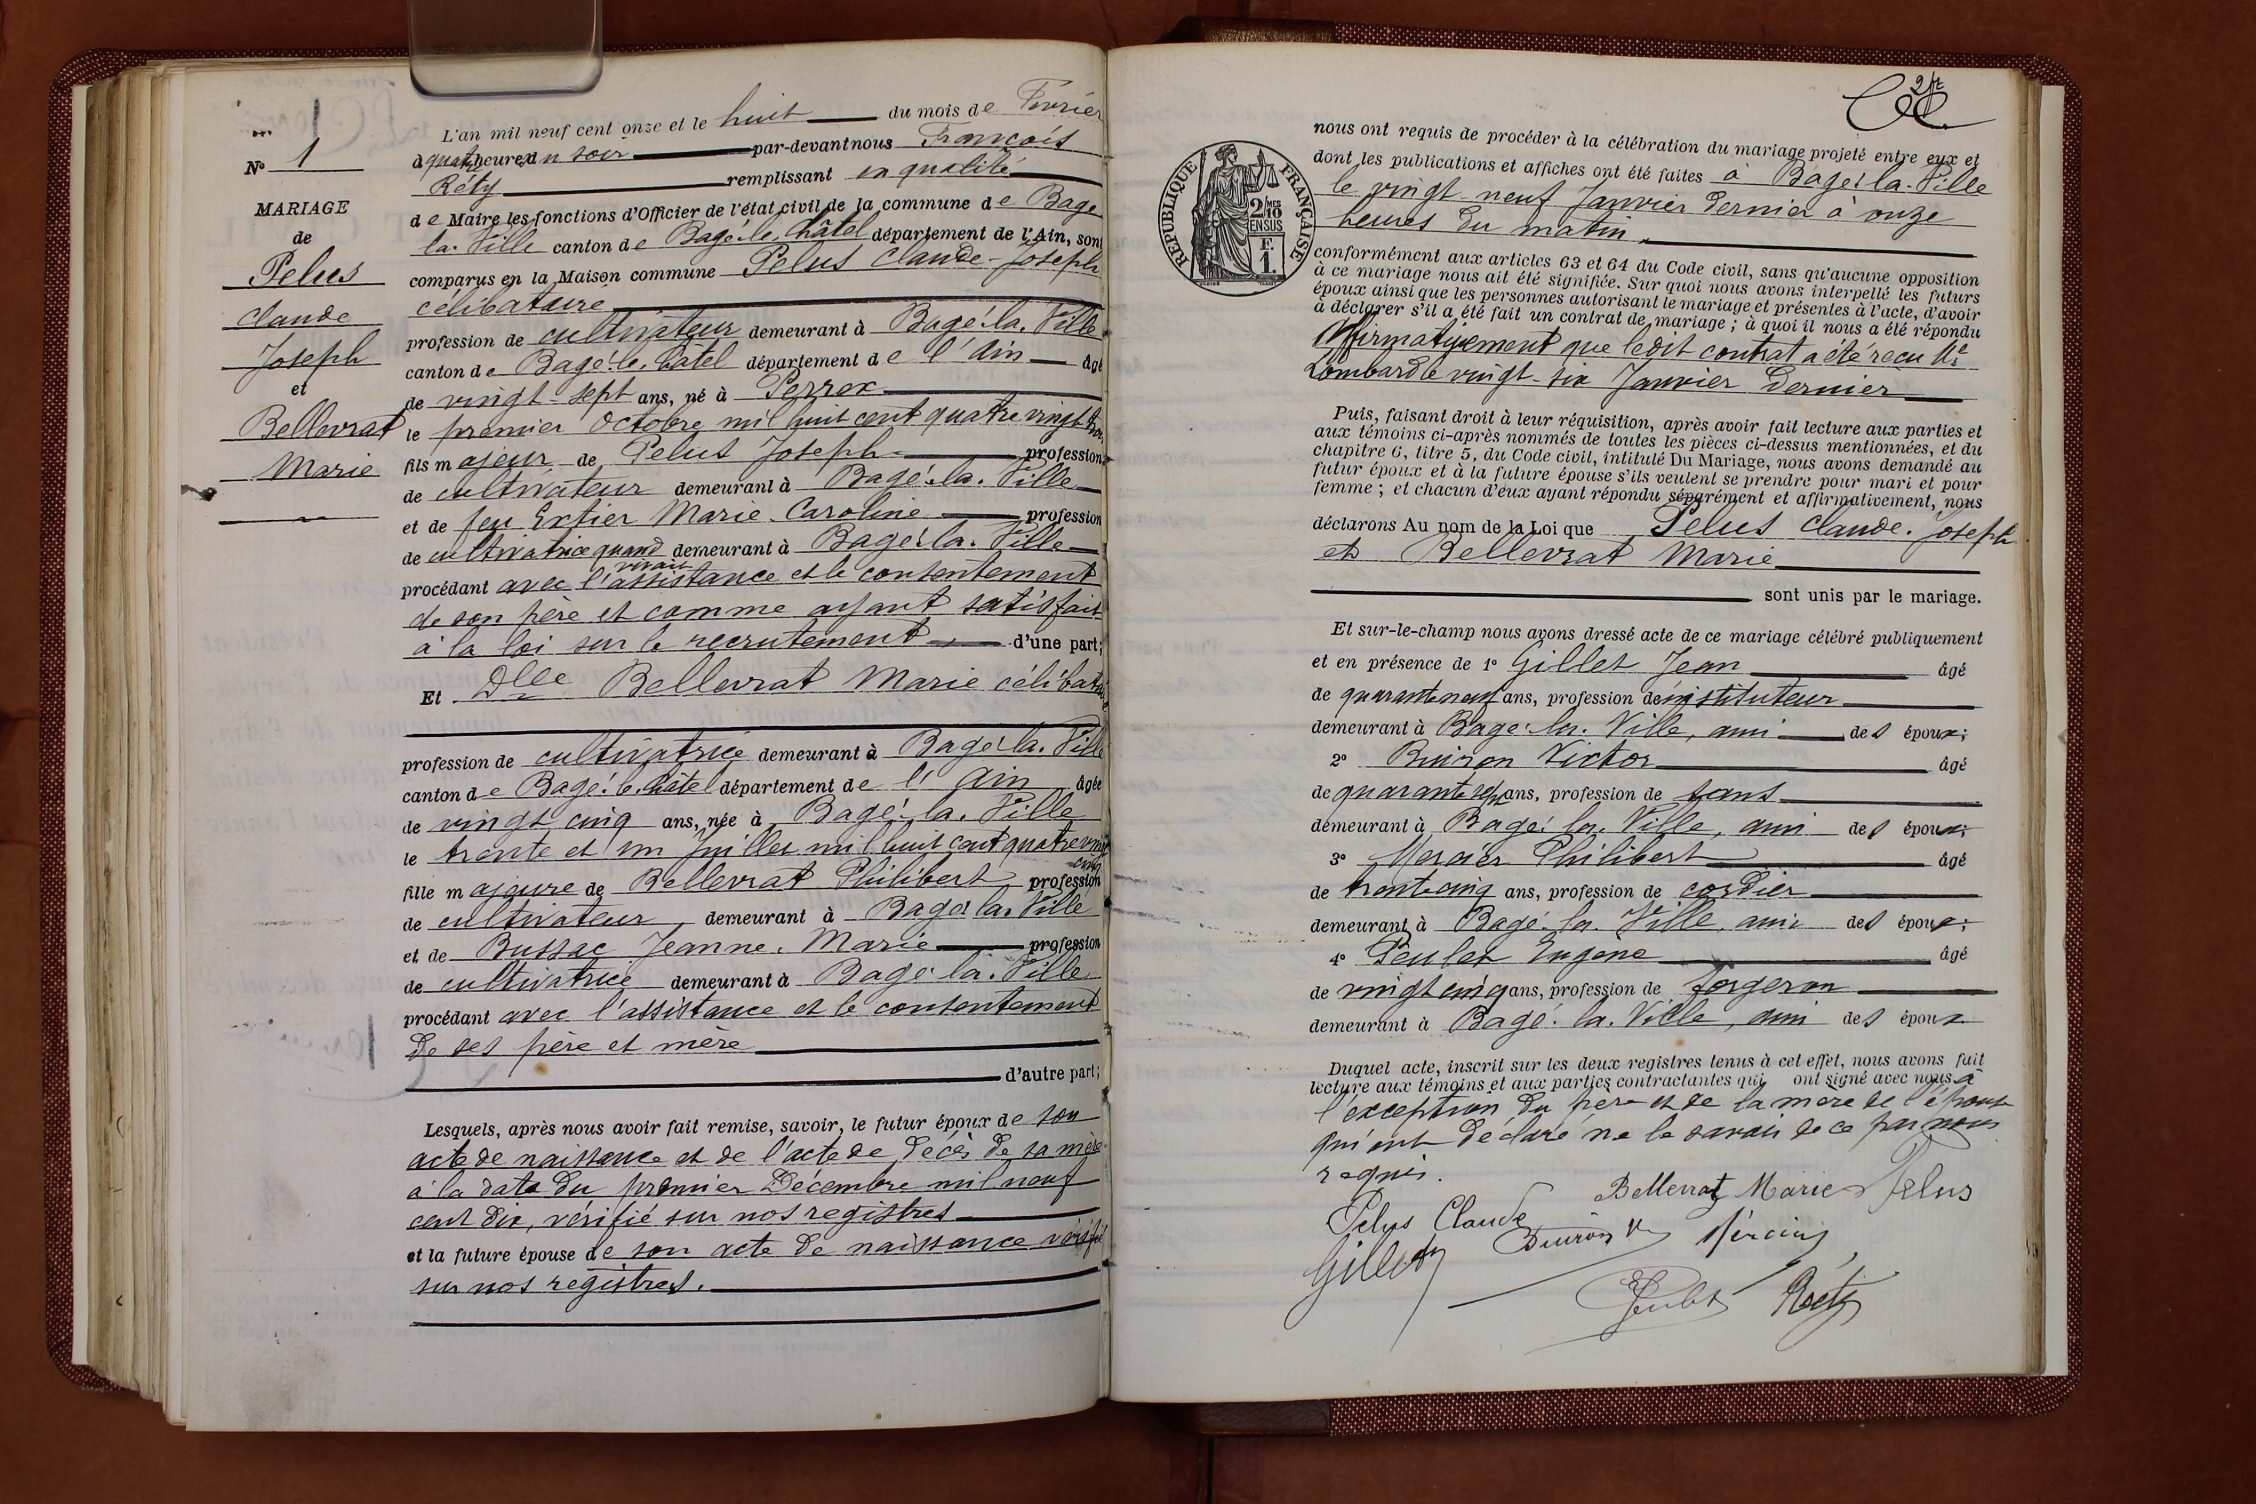 N° 1
MARIAGE
de
Pelus
Claude
Joseph
et
Bellevrat
Marie
L'an mil neuf cent onze et le huit du mois de Fevrier
à quatre heures du soir par-devant nous François
Réty remplissant en qualité
de Maire les fonctions d'Officier de l'état civil de la commune de Bagé
la. Ville canton de Bagé. le. Châtel département de l'Ain, sont
comparus en la Maison commune Pelus Claude-Joseph
célibataire
profession de cultivateur demeurant à Bagé. la. Ville
canton de Bagé. le. Châtel département de l'Ain âgé
de vingt-sept ans, né à Perrex
le premier Octobre mil huit cent quatre vingt trois
fils majeur de Pelus Joseph profession
de cultivateur demeurant à Bagé. la. Ville
et de feu Extier Marie. Caroline profession
de cultivatrice quand vivait demeurant à Bagé. la. Ville
procédant avec l'assistance et le consentement
de son père et comme ayant satisfait
à la loi sur le recrutement d'une part;
Et Dlle Bellevrat Marie célibataire
profession de cultivatrice demeurant à Bagé. la. Ville
canton de Bagé. le. Châtel département de l'Ain âgée
de vingt cinq ans, née à Bagé. la. Ville
le trente et un Juillet mil huit cent quatre vingt cinq
fille majeure de Bellevrat Philibert profession
de cultivateur demeurant à Bagé. la. Ville
et de Bussac Jeanne. Marie profession
de cultivatrice demeurant à Bagé. la. Ville
procédant avec l'assistance et le consentement
de ses père et mère
d'autre part;
Lesquels, après nous avoir fait remise, savoir, le futur époux de son
acte de naissance et de l'acte de décès de sa mère
à la date du premier Décembre mil neuf
cent dix, vérifié sur nos registres
et la future épouse de son acte de naissance vérifié
sur nos registres.
2
RÉPUBLIQUE FRANÇAISE
2/10 MES
EN SUS
F.
1.
nous ont requis de procéder à la célébration du mariage projeté entre eux et
dont les publications et affiches ont été faites à Bagé. la. Ville
le vingt neuf Janvier dernier à onze
heures du matin.
conformément aux articles 63 et 64 du Code civil, sans qu'aucune opposition
à ce mariage nous ait été signifiée. Sur quoi nous avons interpellé les futurs
époux ainsi que les personnes autorisant le mariage et présentes à l'acte, d'avoir
à déclarer s'il a été fait un contrat de mariage; à quoi il nous a été répondu
Affirmativement que ledit contrat a été reçu Me
Lombard le vingt-six Janvier dernier
Puis, faisant droit à leur réquisition, après avoir fait lecture aux parties et
aux témoins ci-après nommés de toutes les pièces ci-dessus mentionnées, et du
chapitre 6, titre 5, du Code civil, intitulé Du Mariage, nous avons demandé au
futur époux et à la future épouse s'ils veulent se prendre pour mari et pour
femme; et chacun d'eux ayant répondu séparément et affirmativement, nous
déclarons Au nom de la Loi que Pelus Claude. Joseph
et Bellevrat Marie
sont unis par le mariage.
Et sur-le-champ nous avons dressé acte de ce mariage célébré publiquement
et en présence de 1° Gillet Jean âgé
de quarante neuf ans, profession de instituteur
demeurant à Bagé. la. Ville, ami des époux;
2° Buiron Victor âgé
de quarante sept ans, profession de sans
demeurant à Bagé. la. Ville, ami des époux;
3° Mercier Philibert âgé
de trente cinq ans, profession de cordier
demeurant à Bagé. la. Ville, ami des époux;
4° Peulet Eugène âgé
de vingt cinq ans, profession de forgeron
demeurant à Bagé. la. Ville, ami des époux
Duquel acte, inscrit sur les deux registres tenus à cet effet, nous avons fait
lecture aux témoins et aux parties contractantes qui ont signé avec nous à
l'exception du père et de la mère de l'épouse
qui ont déclaré ne le savoir de ce par nous
requis.
Bellevrat Marie Pelus
Pelus Claude
Gillet Buiron Vr Mercier
E Peulet Réty